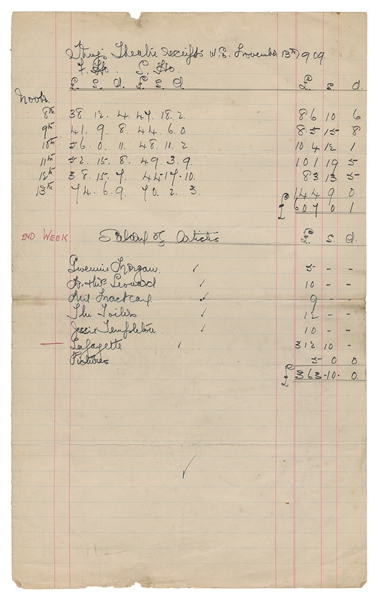 Theatre receipts W.E. November 13th 1909
F. Ho. S. Ho
£ s. d. £ s. d. £ s d
Novbr
8th 38. 12. 4. 47. 18. 2. 86 10 6
9th 41. 9. 8. 44. 6. 0 85 15 8
10th 56. 0. 11 48. 11. 2 104 12 1
11th 52. 15. 8. 49. 3. 9. 101 19 5
12th 38. 15. 7. 44 17. 10. 83 13 5
13th 74. 6. 9. 70. 2. 3. 144 9 0
£ 607 0 1
2ND WEEK of Artists £ s. d
Gwennie Morgan ✓ 5 - -
Mr & Mrs Leonard ✓ 10 - -
✓ 9 - -
The Toilers ✓ 12 - -
Jessie Templeton ✓ 10 - -
Lafayette ✓ 312 10 -
Pictures 5 0 0
£ 363. 10. 0